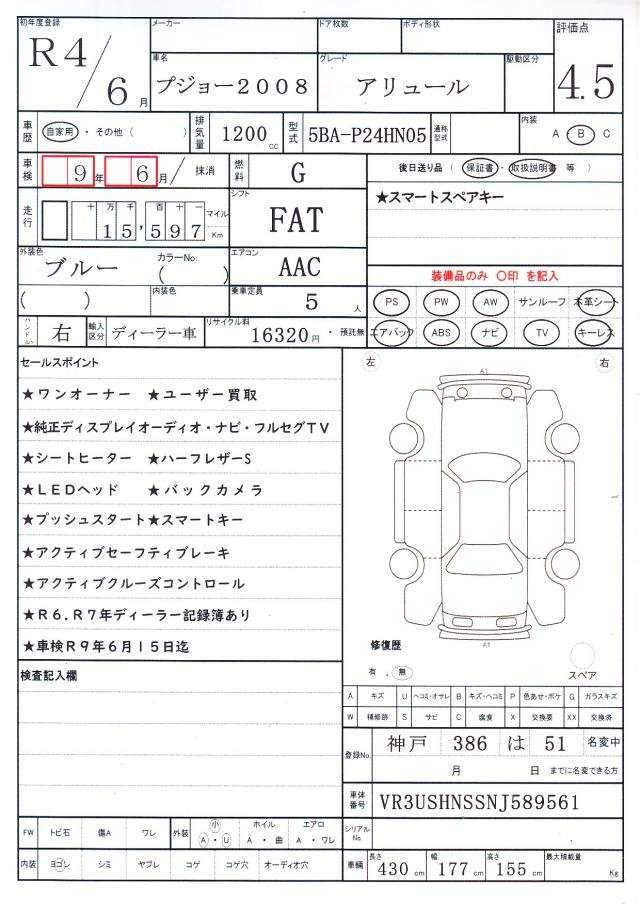 初年度登録 メーカー ドア枚数 ボディ形状 評価点
R4/6月 車名 プジョー2008 グレード アリュール 駆動区分 4.5
車歴 自家用 ・ その他 ( ) 排気量 1200cc 型式 5BA-P24HN05 通称型式 内装 A ・ B C
車検 9年 6月/ 抹消 燃料 G 後日送り品 ( 保証書 ・ 取扱説明書 等 )
走行 十万千百十一 15,597 マイル Km シフト FAT ★スマートスペアキー
外装色 ブルー カラーNo. ( ) エアコン AAC
装備品のみ 〇印 を記入
( ) 内装色 乗車定員 5人 PS PW AW サンルーフ 本革シート
ハンドル 右 輸入区分 ディーラー車 リサイクル料 16320円 ・ 預託無 エアバック ABS ナビ TV キーレス
セールスポイント 左 右
★ワンオーナー ★ユーザー買取
★純正ディスプレイオーディオ・ナビ・フルセグTV
★シートヒーター ★ハーフレザーS
★LEDヘッド ★バックカメラ
★プッシュスタート★スマートキー
★アクティブセーフティブレーキ
★アクティブクルーズコントロール
★R6.R7年ディーラー記録簿あり
★車検R9年6月15日迄
A1
A1
修復歴
有 . 無 スペア
検査記入欄
A キズ U ヘコミ・オサレ B キズ・ヘコミ P 色あせ・ボケ G ガラスキズ
W 補修跡 S サビ C 腐食 X 交換要 XX 交換済
登録No. 神戸 386 は 51 名変中
月 日 までに名変できる方
車体番号 VR3USHNSSNJ589561
FW トビ石 傷A ワレ 外装 小 A ・ U ホイル A ・ 曲 エアロ A ・ ワレ シリアルNo.
内装 ヨゴレ シミ ヤブレ コゲ コゲ穴 オーディオ穴 車輛 長さ 430cm 幅 177cm 高さ 155cm 最大積載量 Kg